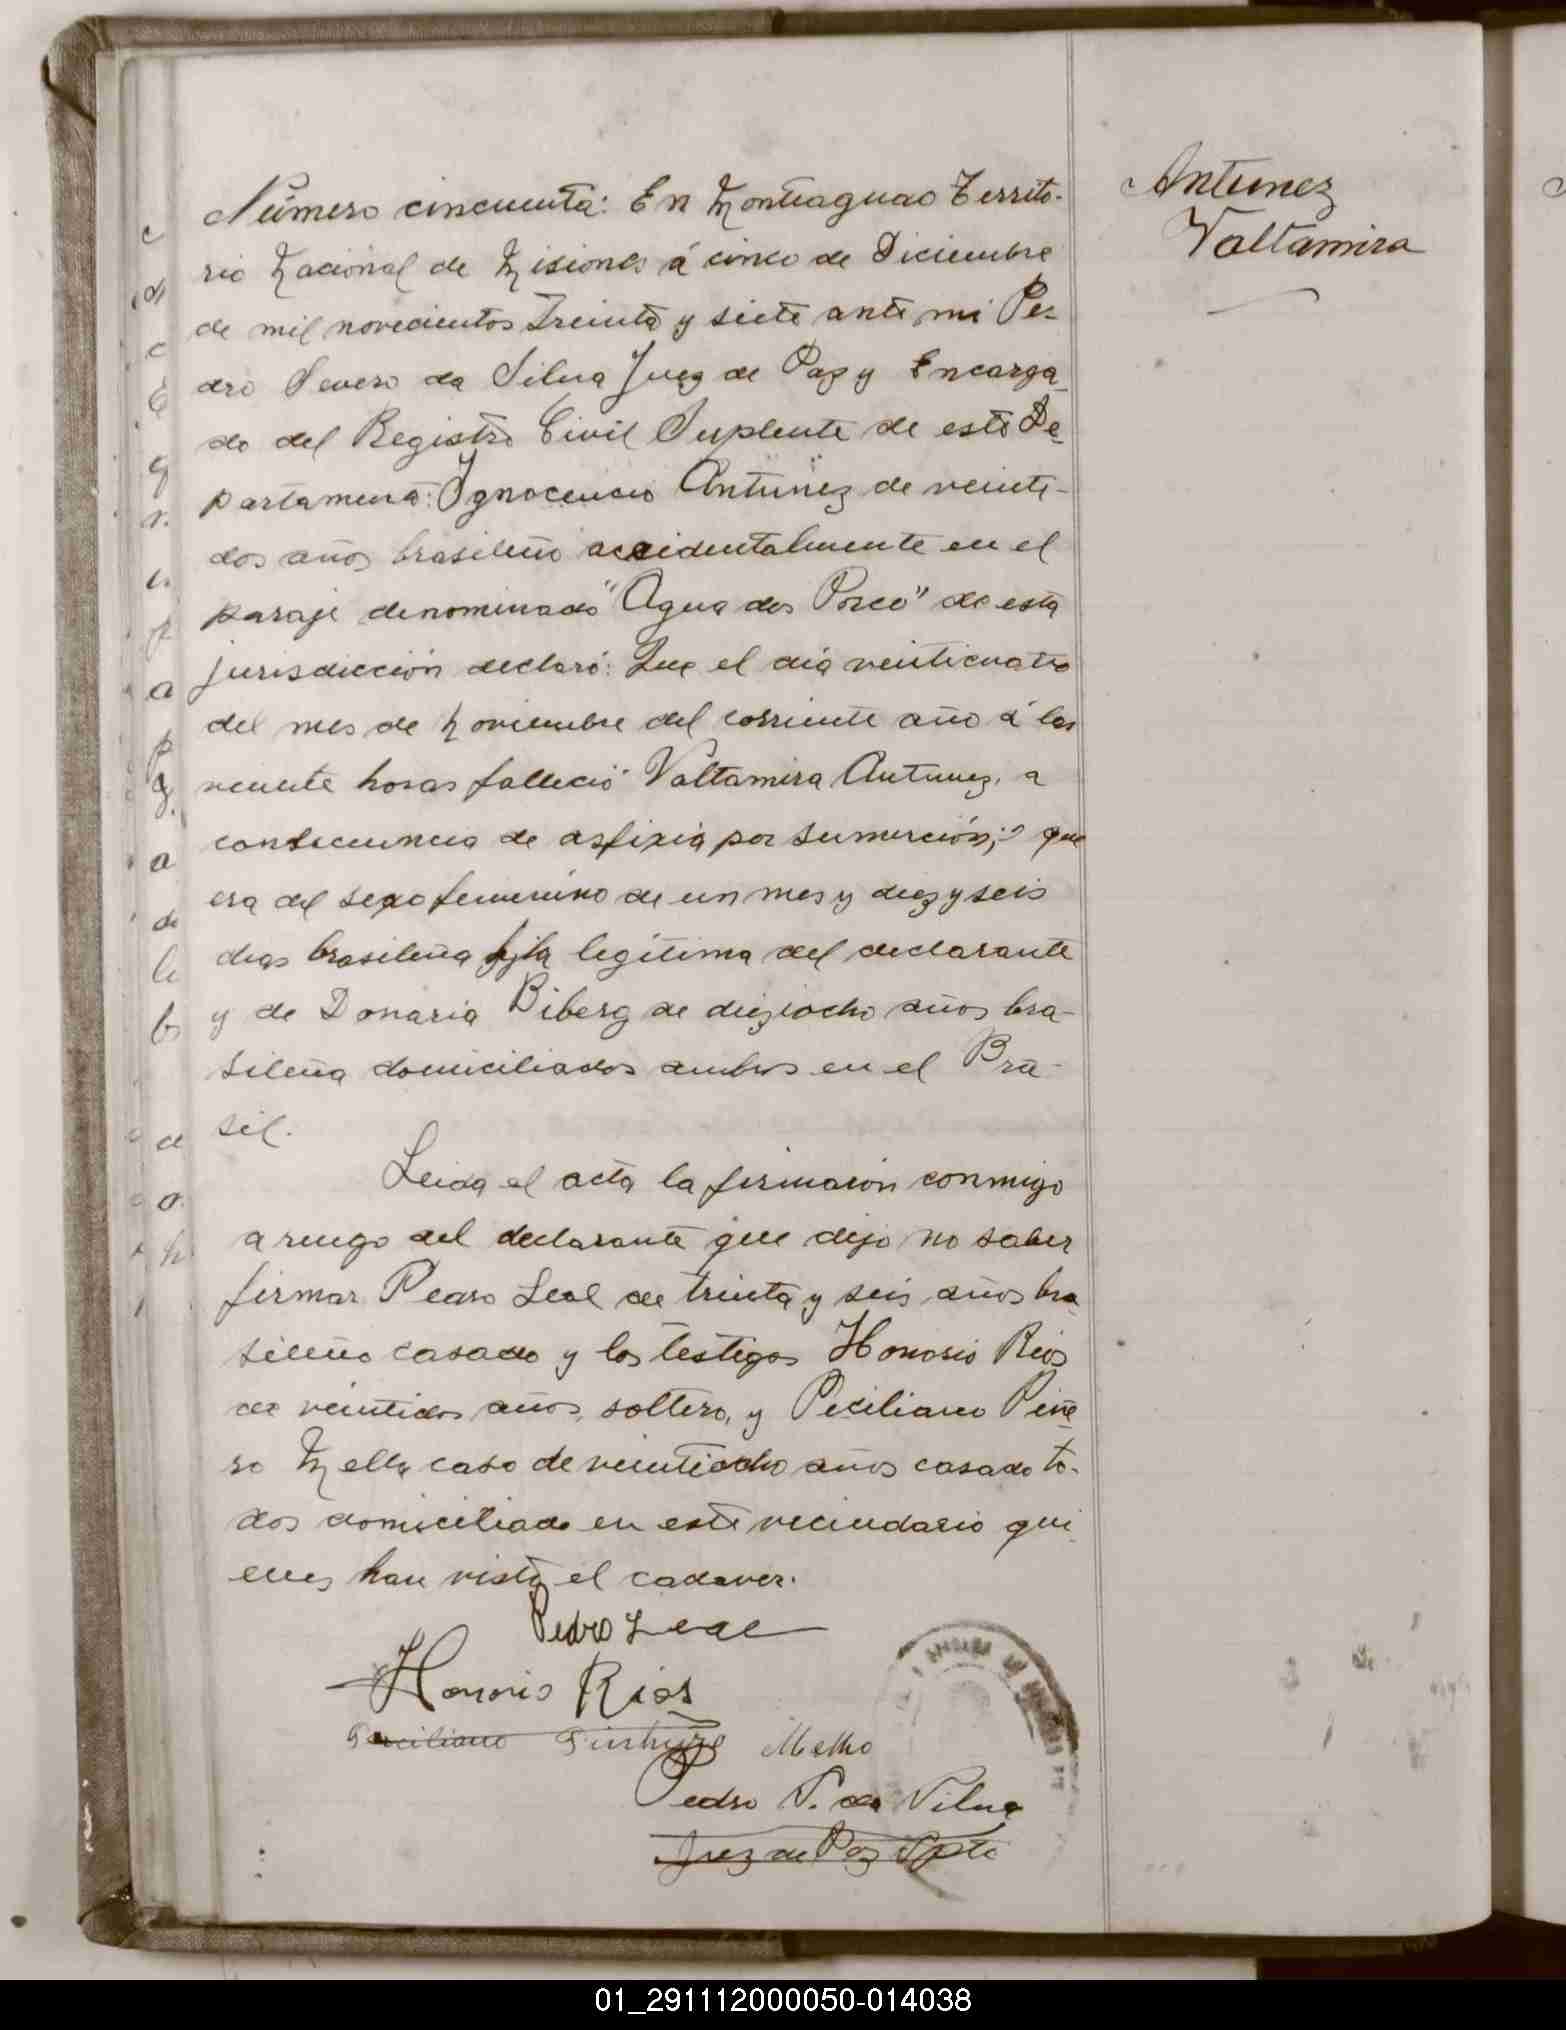 Antunez
Valtamira
Número cincuenta: En Monteagudo Territo-
rio Nacional de Misiones á cinco de Diciembre
de mil novecientos treinta y siete ante mi Pe-
dro Severo da Silva Juez de Paz y Encarga-
do del Registro Civil Suplente de este De-
partamento: Ignocencio Antunez de veinte-
dos años brasileño accidentalmente en el
paraje denominado "Agua dos Porco" de esta
jurisdicción declaró: Que el dia veinticuatro
del mes de Noviembre del corriente año á las
veinte horas falleció Valtamira Antunez, a
consecuencia de asfixia por sumerción; que
era del sexo femenino de un mes y diez y seis
dias brasileña hija legítima del declarante
y de Donaria Biberg de dieziocho años bra-
sileña domiciliados ambos en el Bra-
sil.
Leida el acta la firmaron conmigo
a ruego del declarante que dijo no saber
firmar Pedro Leal de treinta y seis años bra
sileño casado y los testigos Honorio Rios
de veintidos años, soltero, y Peciliano Piñe
ro Mello caso de veintiocho años casado to-
dos domiciliado en este vecindario qui
enes han visto el cadaver.
Pedro Leal
Honorio Rios
Mello
Pedro S. da Silva
Juez de Paz Spte
01_291112000050-014038